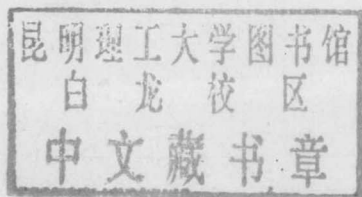 昆明理工大学图书馆
白龙校区
中文藏书章